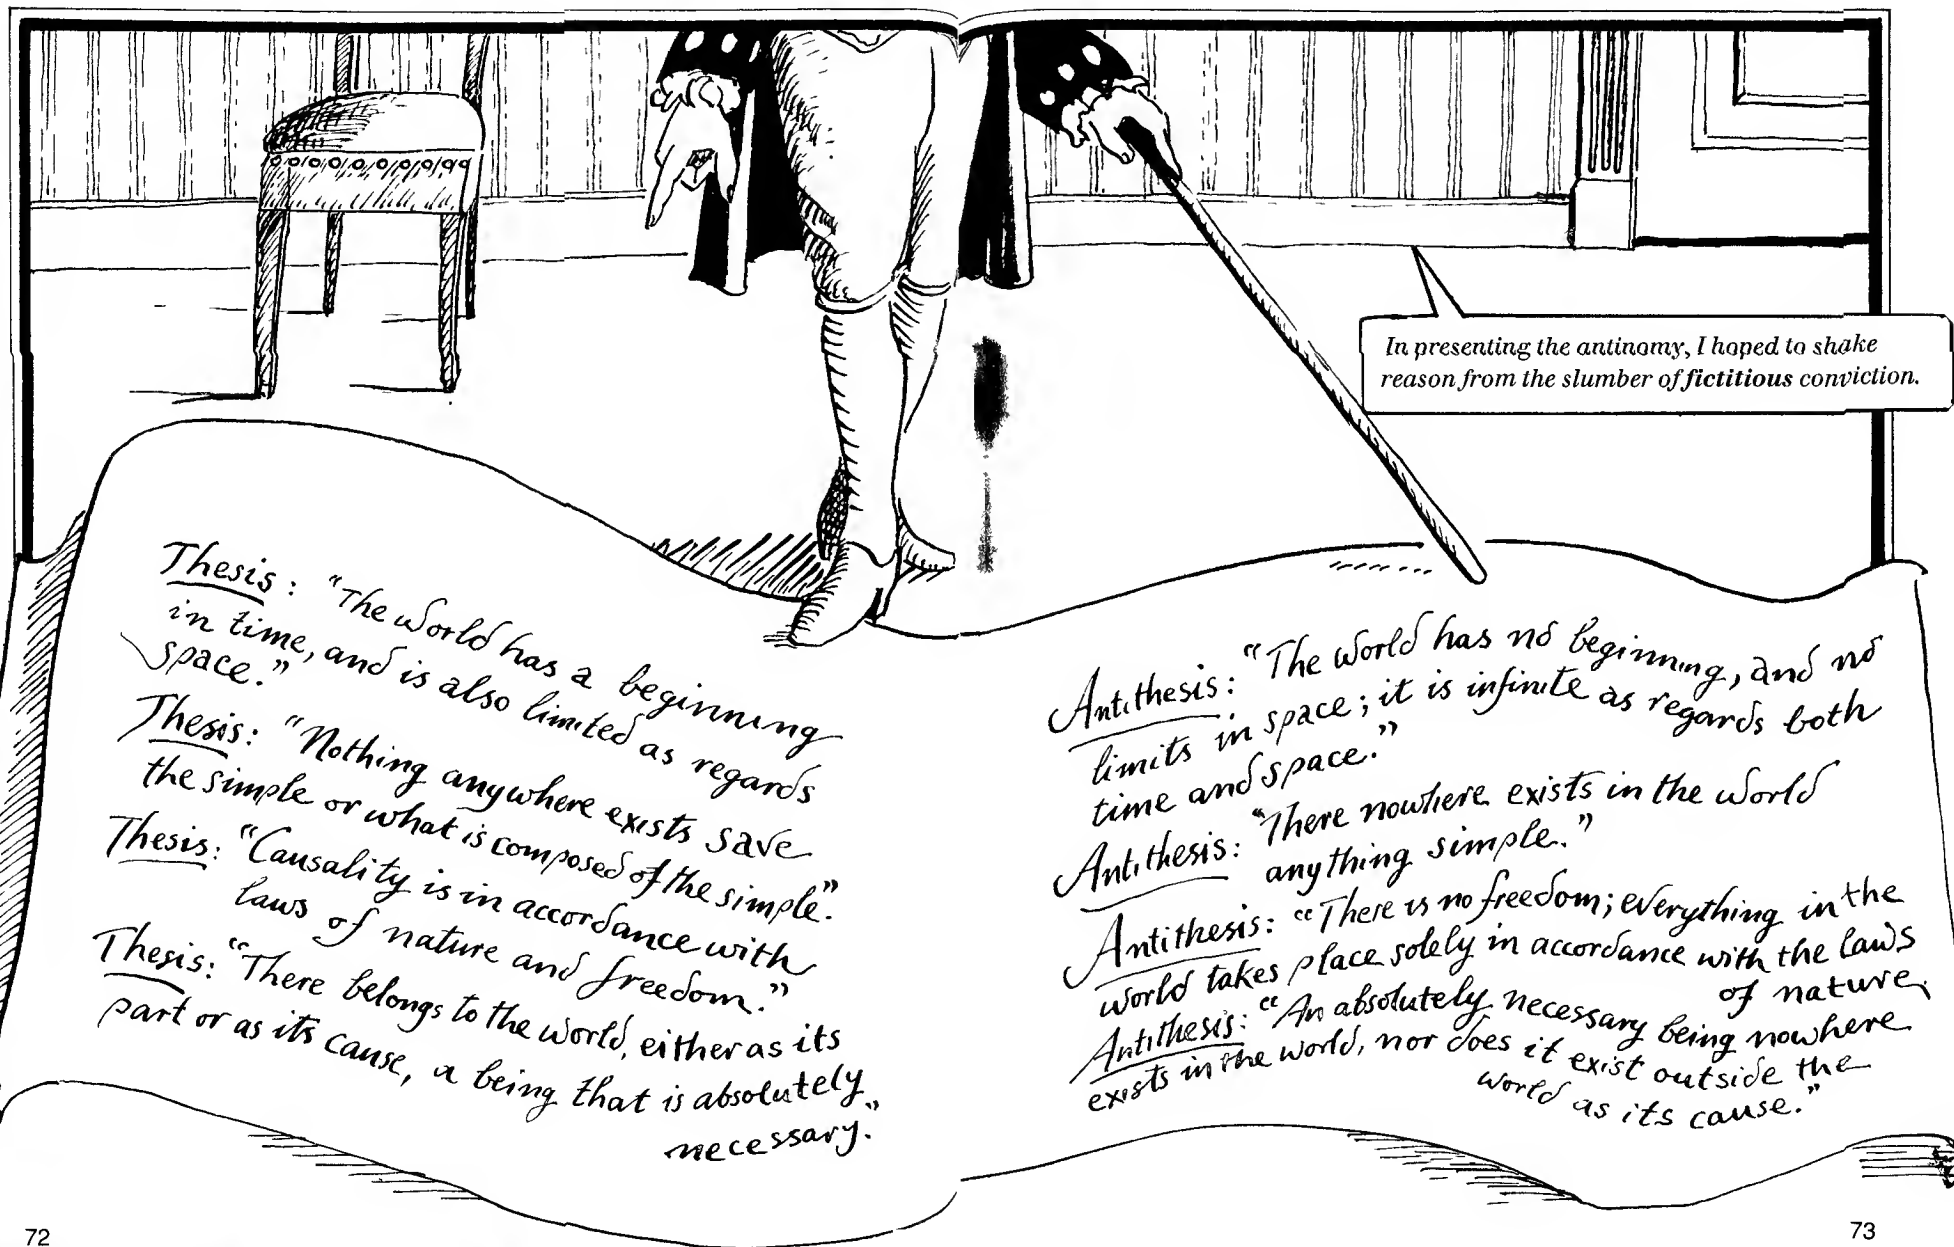 In presenting the antinomy, I hoped to shake
reason from the slumber of fictitious conviction.
Thesis: "The world has a beginning
in time, and is also limited as regards
space."
Thesis: "Nothing anywhere exists save
the simple or what is composed of the simple".
Thesis: "Causality is in accordance with
laws of nature and freedom."
Thesis: "There belongs to the world, either as its
part or as its cause, a being that is absolutely
necessary."
Antithesis: "The world has no beginning, and no
limits in space; it is infinite as regards both
time and space."
Antithesis: "There nowhere exists in the world
anything simple."
Antithesis: "There is no freedom; everything in the
world takes place solely in accordance with the laws
of nature.
Antithesis: "An absolutely necessary being nowhere
exists in the world, nor does it exist outside the
world as its cause."
72
73